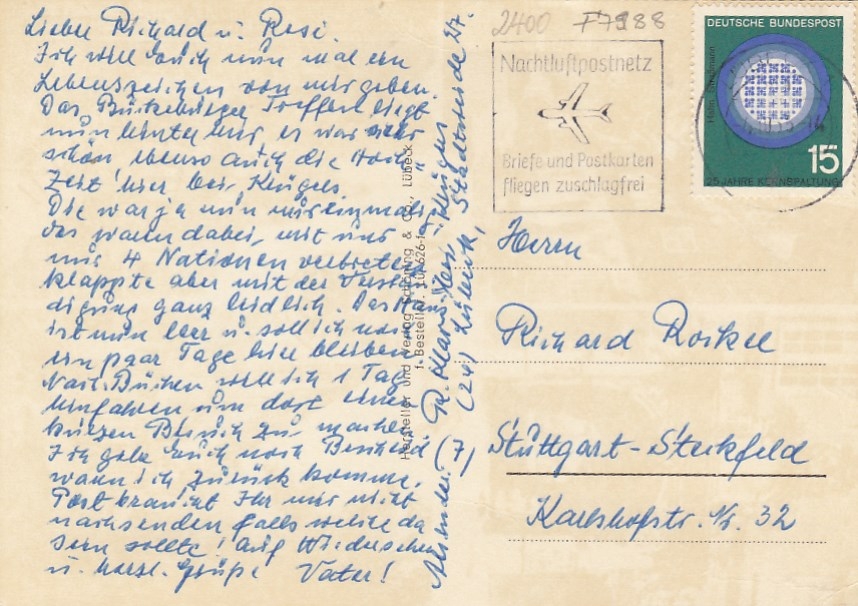 Lieber Richard u. Rosi.
Ich will Euch nun mal ein
Lebenszeichen von mir geben.
Das Treffen liegt
nun hinter mir, es war sehr
schön ebenso auch die Hoch-
zeit hier bei Klügers.
Die war ja nun
das wann dabei, mit uns
4 Nationen vertreten
klappte aber mit der Verstän-
digung ganz leidlich. Das Haus
ist nun leer u. soll ich noch
ein paar Tage hier bleiben
Nach Büchen will ich 1 Tag
hinfahren um dort einen
kurzen Besuch zu machen
Ich gebe Euch noch Bescheid
wann ich zurück komme.
Post braucht Ihr mir nicht
nachsenden falls welche da
sein sollte! Auf Wiedersehen
u. herzl. Grüße Vater!
Absender:
(24) Lübeck, 27.
Hersteller und Verlag Schöning & Co., Lübeck
Bestell-Nr. Lü 626-f
2400 F7988
Nachtluftpostnetz
Briefe und Postkarten
fliegen zuschlagfrei
DEUTSCHE BUNDESPOST
15
25 JAHRE KERNSPALTUNG
Herrn
Richard Roikel
(7) Stuttgart-Steckfeld
Karlshofstr. 32